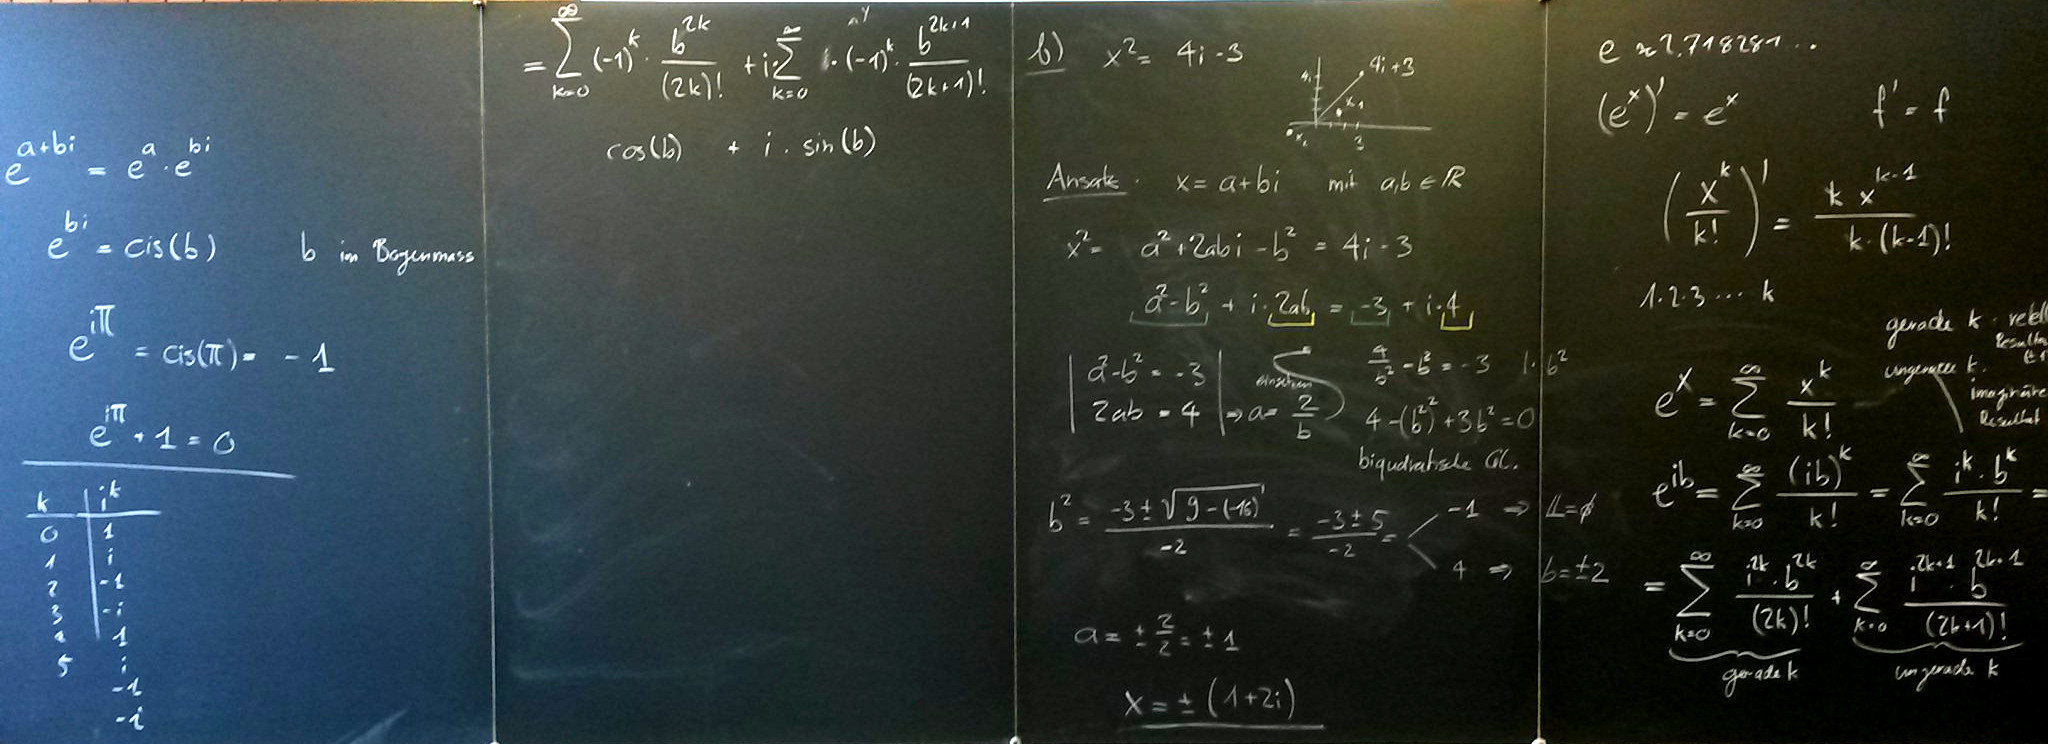 e^{a+bi} = e^a · e^{bi}
e^{bi} = cis(b)   b im Bogenmass
e^{iπ} = cis(π) = -1
e^{iπ} + 1 = 0
k | i^k
0 | 1
1 | i
2 | -1
3 | -i
4 | 1
5 | i
-1
-i
= ∑_{k=0}^{∞} (-1)^k · b^{2k}/(2k)! + i·∑_{k=0}^{∞} i·(-1)^k · b^{2k+1}/(2k+1)!
cos(b) + i · sin(b)
b) x² = 4i - 3
4i 4i+3
x₁
x₂ 3
Ansatz: x = a+bi mit a,b ∈ ℝ
x² = a² + 2abi - b² = 4i - 3
a² - b² + i·2ab = -3 + i·4
| a² - b² = -3 |
| 2ab = 4 | ⇒ a = 2/b einsetzen
4/b² - b² = -3 | · b²
4 - (b²)² + 3b² = 0
biquadratische Gl.
b² = (-3 ± √(9-(-16)))/(-2) = (-3 ± 5)/(-2) =
-1 ⇒ 𝕃 = ∅
4 ⇒ b = ±2
a = ± 2/2 = ±1
x = ± (1+2i)
e ≈ 2.718281...
(e^x)' = e^x   f' = f
(x^k/k!)' = k x^{k-1}/(k·(k-1)!)
1·2·3···· k
gerade k
ungerade k
imaginäre
Resultat
e^x = ∑_{k=0}^{∞} x^k/k!
e^{ib} = ∑_{k=0}^{∞} (ib)^k/k! = ∑_{k=0}^{∞} i^k · b^k/k! =
= ∑_{k=0}^{∞} i^{2k} · b^{2k}/(2k)! + ∑_{k=0}^{∞} i^{2k+1} · b^{2k+1}/(2k+1)!
gerade k   ungerade k